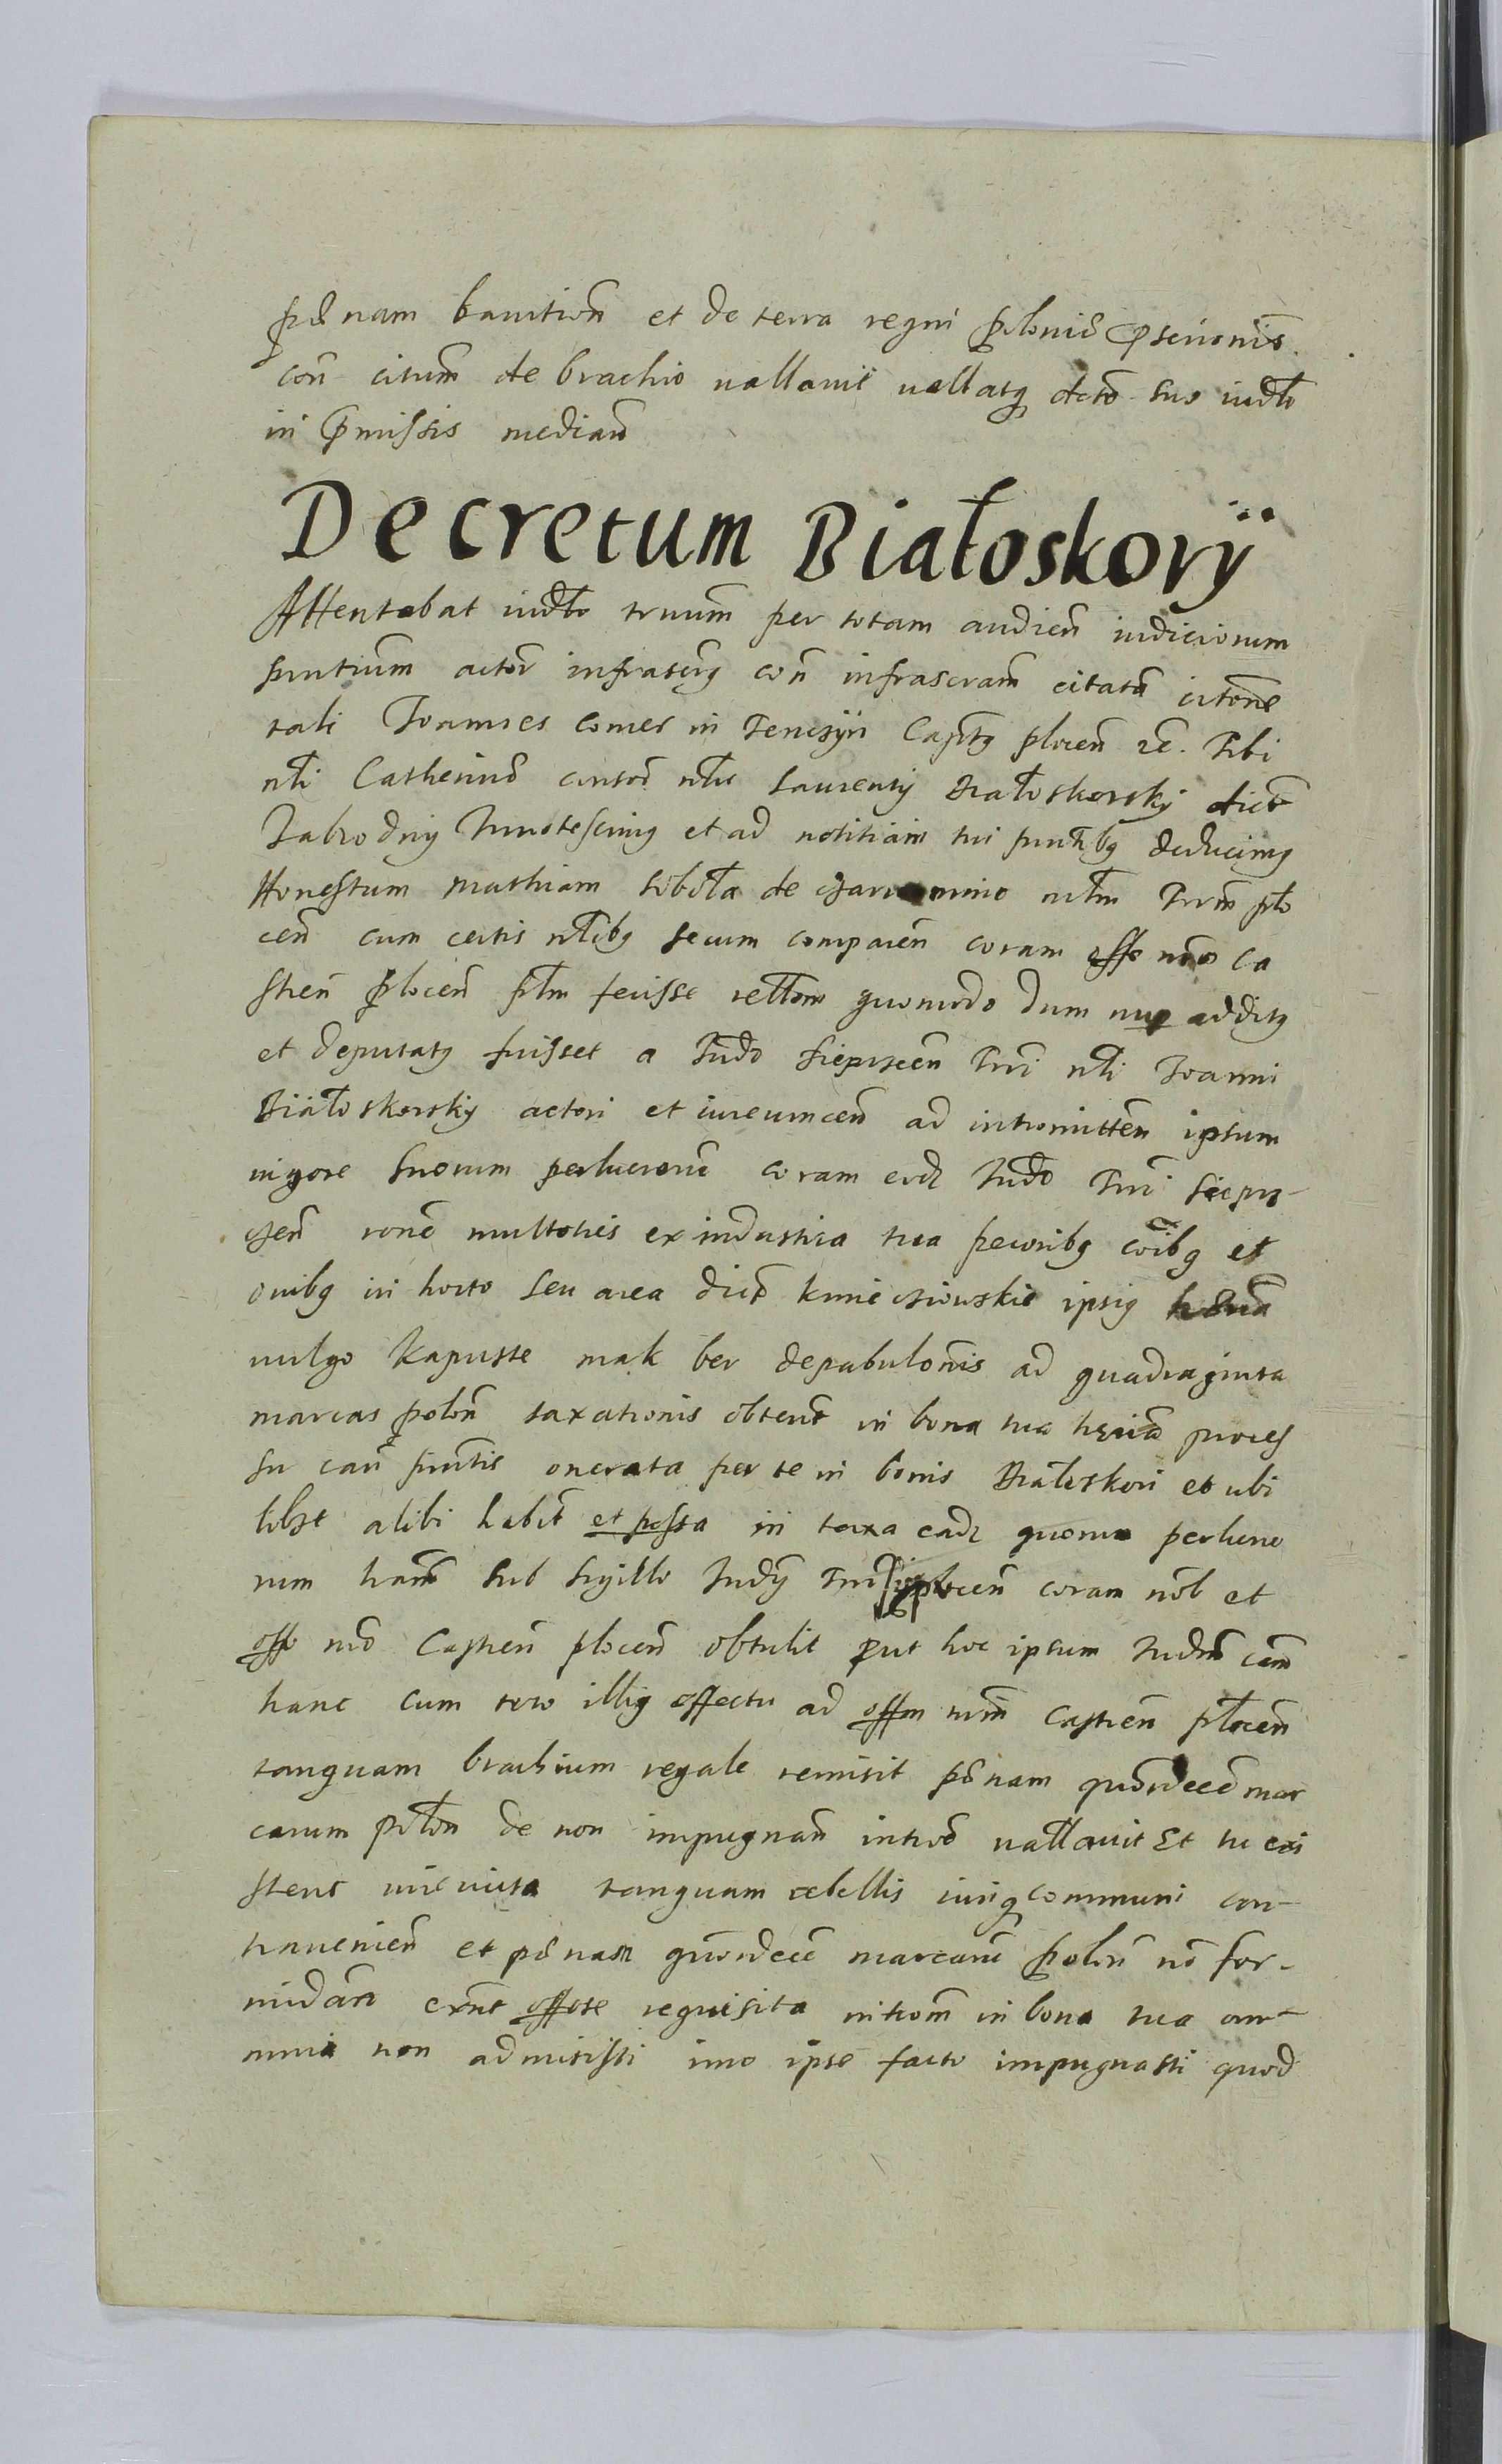 pęnam banition̄ et de terra regni polonię pscrionis
con̄ citum̄ de brachio vallavit vallatq decto suo iudło
in p̄missis median̄
Decretum Białoskory
Attentabat iudło trnum̄ per totam audien̄ iudiciorum
pn̄tium actor infrascrq con̄ infrascram̄ citatā citone
tali Joannes comes in Tenczyn Captq plocen̄ &c. Tibi
nłi Catherinę consor nłis Laurenty Białoskorsky dictę
Zabrodny Innotescimq et ad notitiam tui pn̄tibq deducimq
Honestum Mathiam Sobota de nłm Trm̄ plo
cen̄ cum certis nłibq secum comparen̄ coram offo nr̄o ca
stren̄ plocen̄ płm fecisse rełłom quomodo dum nup additq
et deputatq fuisset a Iudo Sieprcen̄ Tri nłi Joanni
Białoskorsky actori et iureuincen̄ ad intromitten̄ ipsum
vigore suorum perlucrorū coram eod Iudo Tri Siepr-
cen̄ ronę multoties ex industria tua pecoribq coibq et
ovibq in horto seu area dict kmieczowskie ipsiq
vulgo kapuste mak ber depabulonis ad quadraginta
marcas polon̄ taxationis obtent in bona tua proces
su can̄ pn̄tis onerata per te in bonis Białoskori et ubi
libet alibi habit et possa in terra eadē quorum perlucro
rum sub sigillo Iudy Tri plocen̄ coram nob et
offo nr̄o Castren̄ plocen̄ obtulit put hoc ipsum Iudm̄ cam̄
hanc cum toto illiq effectu ad offm nrm̄ Castren̄ płocen̄
tanquam brachium regale remisit pęnam quordecę mar
carum połon̄ de non impugnan̄ introę vallavit Et tu exi
stens iurevicta tanquam rebellis iuriq communi con-
travenien̄ et pęnam quordecę marcarū polon̄ no for-
midan̄ offose requisita introm̄ in bona tua om-
nia non admisisti imo ipse facto impugnasti quod